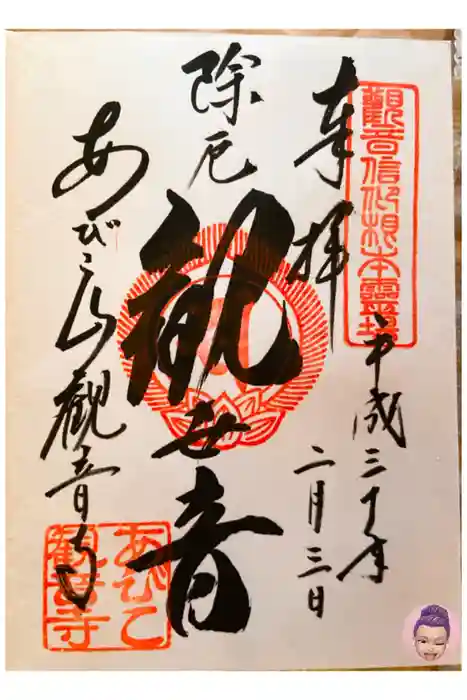 觀音信仰根本靈場
奉拝
平成三十年
二月三日
除厄
観世音
あびこ山觀音寺
あびこ
観音寺